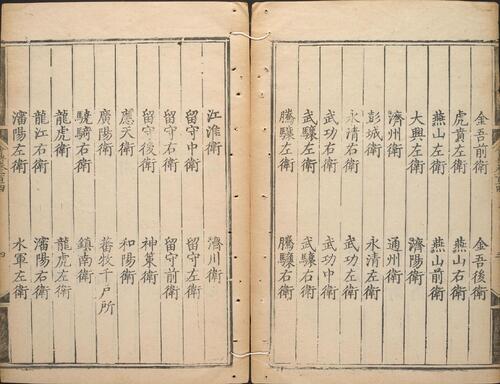 金吾前衛 金吾後衛
虎賁左衛 燕山右衛
燕山左衛 燕山前衛
大興左衛 濟陽衛
濟州衛 通州衛
彭城衛 永清左衛
永清右衛 武功左衛
武功右衛 武功中衛
武驤左衛 武驤右衛
騰驤左衛 騰驤右衛
江淮衛 濟川衛
留守中衛 留守左衛
留守右衛 留守前衛
留守後衛 神策衛
應天衛 和陽衛
廣陽衛 蕃牧千戶所
驍騎右衛 鎮南衛
龍虎衛 龍虎左衛
龍江右衛 瀋陽右衛
瀋陽左衛 水軍左衛
四